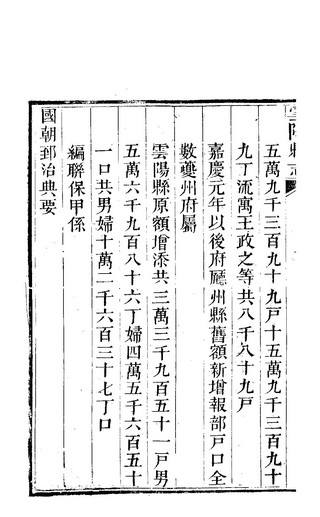 雲陽縣志
五萬九千三百九十九戸十五萬九千三百九十
九丁流寓王政之等共八千八十九戸
嘉慶元年以後府廳州縣舊額新增報部戸口全
數夔州府屬
雲陽縣原額增添共三萬三千九百五十一戸男
五萬六千九百八十六丁婦四萬五千六百五十
一口共男婦十萬二千六百三十七丁口
編聯保甲係
國朝郅治典要